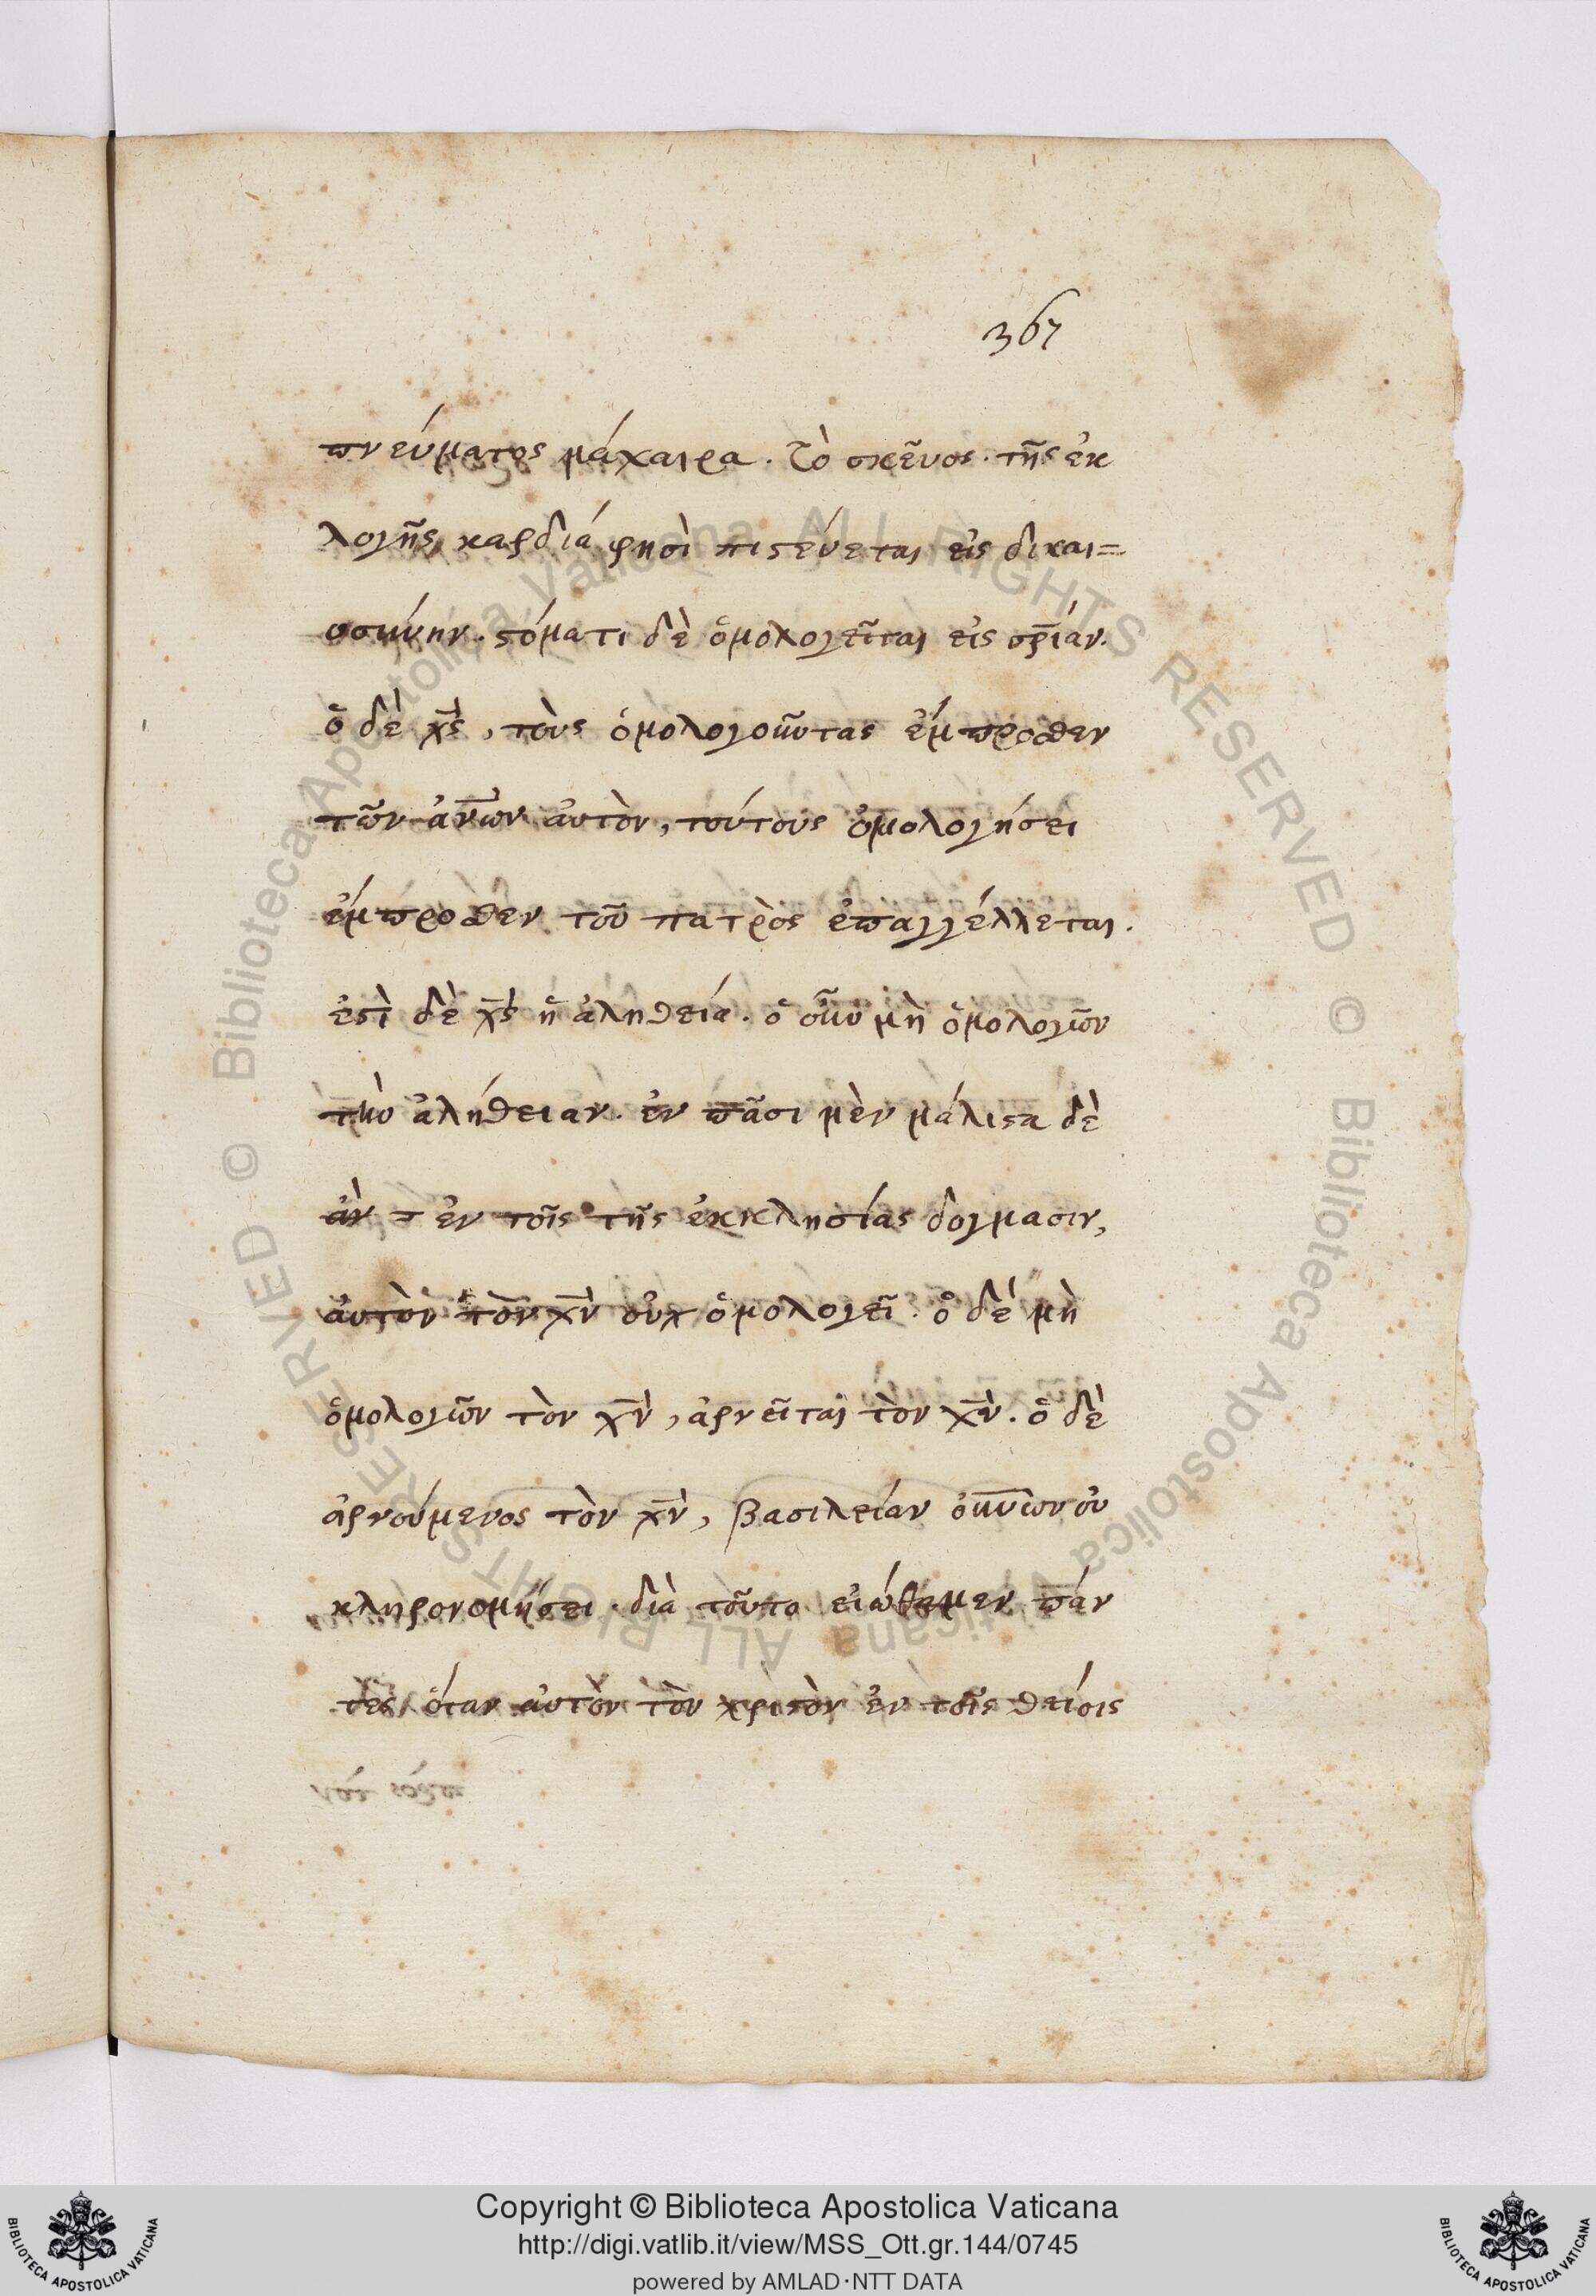 367
πνεύματος μάχαιρα. Τὸ σκεῦος τῆς ἐκ
λογῆς, καρδιά φησὶ πιστεύεται εἰς δικαι=
οσύνην. στόματι δὲ ὁμολογεῖται εἰς σρίαν.
ὁ δὲ χς, τοὺς ὁμολογοῦντας ἔμπροσθεν
τῶν ἀνων αὐτὸν, τούτους ὁμολογήσει
ἔμπροσθεν τοῦ πατρὸς ἐπαγγέλλεται.
ἐστὶ δὲ χς ἡ ἀληθεία. ὁ οὖν μὴ ὁμολογῶν
τὴν ἀλήθειαν. ἐν πᾶσι μὲν μάλιστα δὲ
ἀν ἐν τοῖς τῆς ἐκκλησίας δογμασιν,
αὐτὸν τὸν χν οὐχ ὁμολογεῖ. ὁ δὲ μὴ
ὁμολογῶν τὸν χν, ἀρνεῖται τὸν χν. ὁ δὲ
ἀρνούμενος τὸν χν, βασιλείαν οὐνίων οὐ
κληρονομήσει. διὰ τοῦτο εἰώθαμεν πάν
τες ὅταν αὐτὸν τὸν χριστὸν ἐν τοῖς θείοις
© Biblioteca Apostolica Vaticana ALL RIGHTS RESERVED © Biblioteca Apostolica Vaticana ALL RIGHTS RESERVED
Copyright © Biblioteca Apostolica Vaticana
http://digi.vatlib.it/view/MSS_Ott.gr.144/0745
powered by AMLAD·NTT DATA
BIBLIOTECA APOSTOLICA VATICANA
BIBLIOTECA APOSTOLICA VATICANA